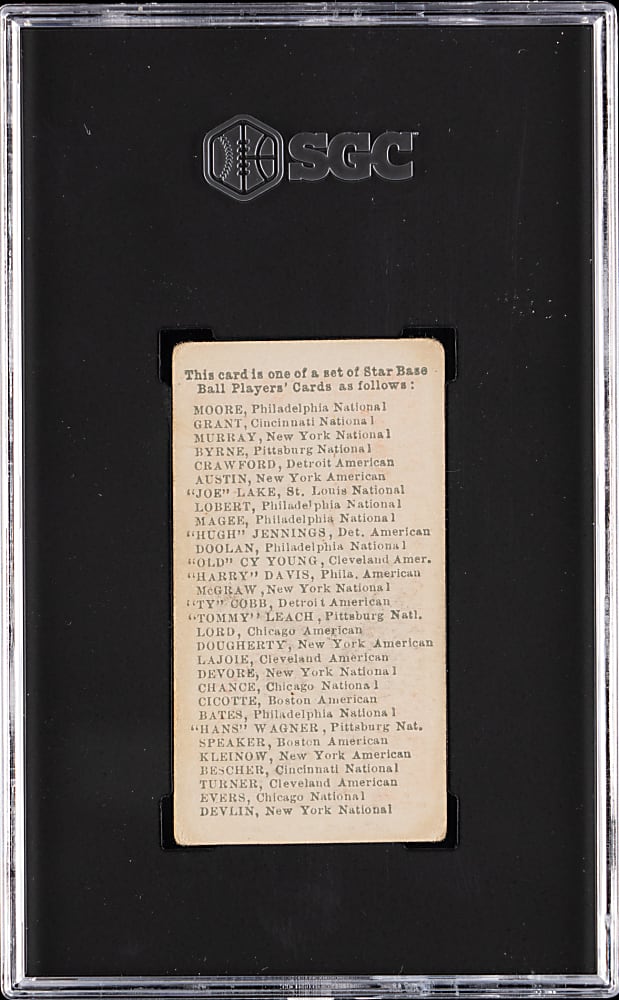 SGC
This card is one of a set of Star Base
Ball Players' Cards as follows:
MOORE, Philadelphia National
GRANT, Cincinnati National
MURRAY, New York National
BYRNE, Pittsburg National
CRAWFORD, Detroit American
AUSTIN, New York American
"JOE" LAKE, St. Louis National
LOBERT, Philadelphia National
MAGEE, Philadelphia National
"HUGH" JENNINGS, Det. American
DOOLAN, Philadelphia National
"OLD" CY YOUNG, Cleveland Amer.
"HARRY" DAVIS, Phila. American
McGRAW, New York National
"TY" COBB, Detroit American
"TOMMY" LEACH, Pittsburg Natl.
LORD, Chicago American
DOUGHERTY, New York American
LAJOIE, Cleveland American
DEVORE, New York National
CHANCE, Chicago National
CICOTTE, Boston American
BATES, Philadelphia National
"HANS" WAGNER, Pittsburg Nat.
SPEAKER, Boston American
KLEINOW, New York American
BESCHER, Cincinnati National
TURNER, Cleveland American
EVERS, Chicago National
DEVLIN, New York National